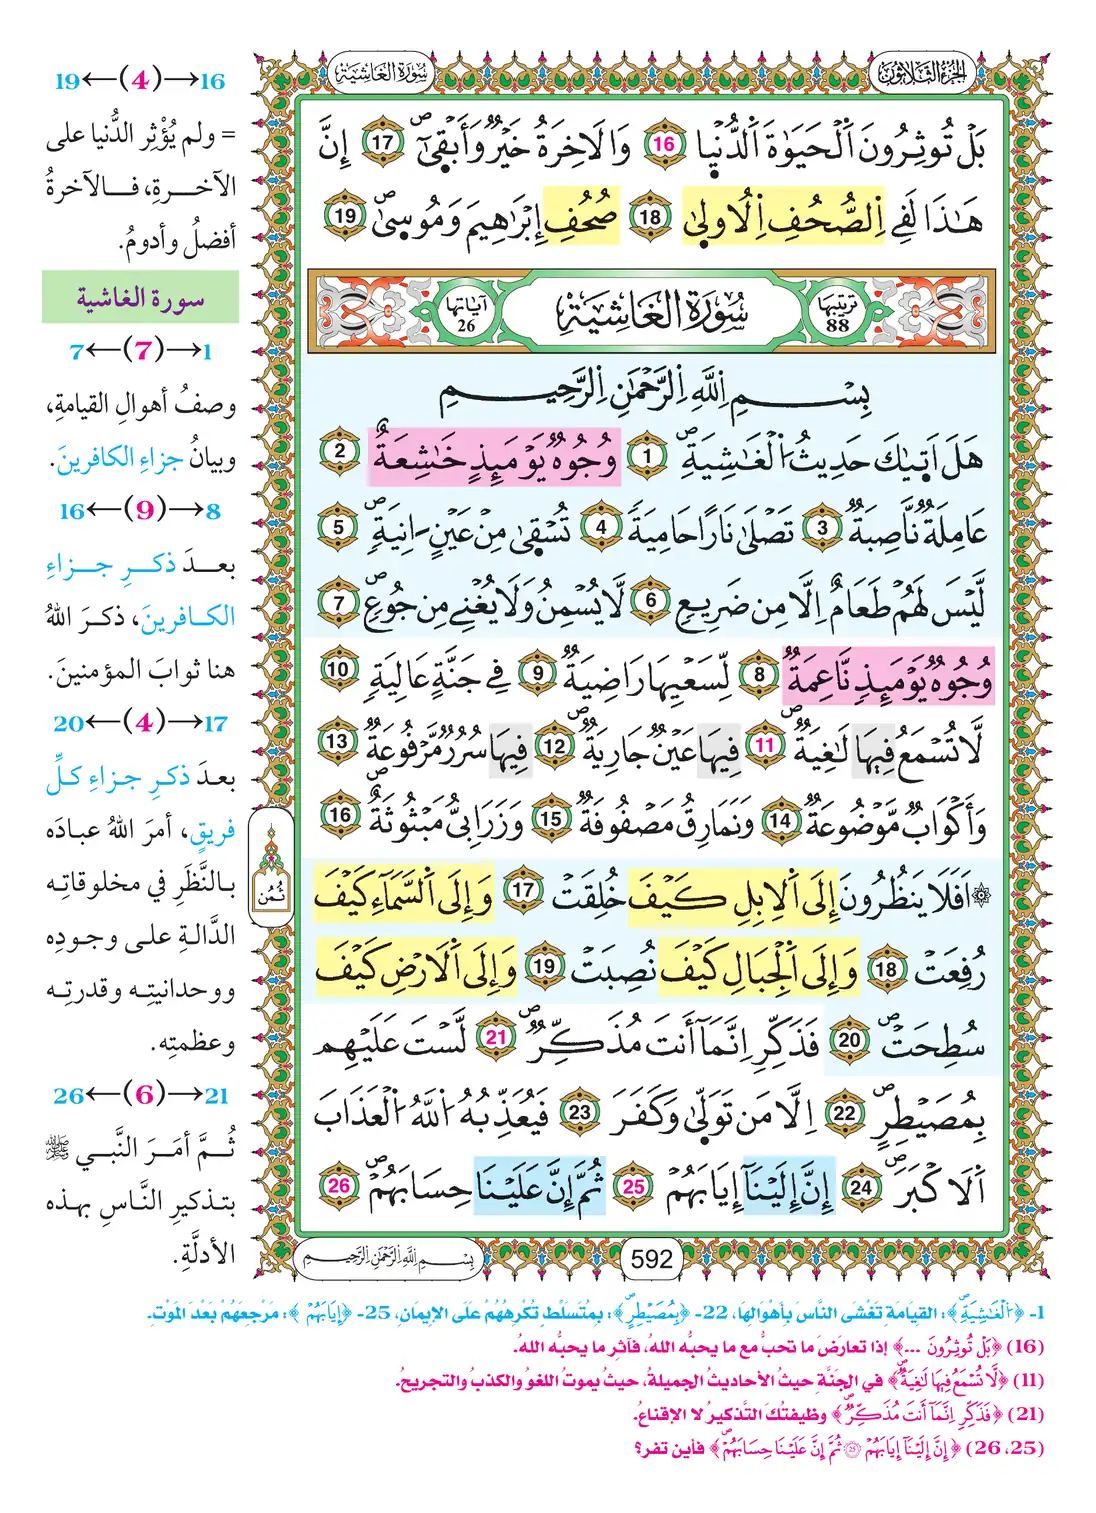 الجزء الثلاثون
سورة الغاشية
بَلْ تُوثِرُونَ اَ۬لْحَيَوٰةَ اَ۬لدُّنْي۪ا 16 وَالَاخِرَةُ خَيْرٌ وَأَبْق۪ىٰٓ 17 إِنَّ
هَٰذَا لَفِے اِ۬لصُّحُفِ اِ۬لُاول۪ىٰ 18 صُحُفِ إِبْرَٰهِيمَ وَمُوس۪ىٰ 19
ترتيبها 88
سُورَةُ الغَاشِيَةِ
آيَاتها 26
بِسْمِ اِ۬للَّهِ اِ۬لرَّحْمَٰنِ اِ۬لرَّحِيمِ
هَلَ اَت۪يٰكَ حَدِيثُ اُ۬لْغَٰشِيَةِ 1 وُجُوهٌ يَوْمَئِذٍ خَٰشِعَةٌ 2
عَامِلَةٌ نَّاصِبَةٌ 3 تَصْلَىٰ نَارًا حَامِيَةً 4 تُسْق۪ىٰ مِنْ عَيْنٍ اٰنِيَةٍ 5
لَّيْسَ لَهُمْ طَعَامٌ اِلَّا مِن ضَرِيعٍ 6 لَّا يُسْمِنُ وَلَا يُغْنِے مِن جُوعٍ 7
وُجُوهٌ يَوْمَئِذٍ نَّاعِمَةٌ 8 لِّسَعْيِهَا رَاضِيَةٌ 9 فِے جَنَّةٍ عَالِيَةٍ 10
لَّا تُسْمَعُ فِيهَا لَٰغِيَةٌ 11 فِيهَا عَيْنٌ جَارِيَةٌ 12 فِيهَا سُرُرٌ مَّرْفُوعَةٌ 13
وَأَكْوَابٌ مَّوْضُوعَةٌ 14 وَنَمَارِقُ مَصْفُوفَةٌ 15 وَزَرَابِيُّ مَبْثُوثَةٌ 16
۞ اَفَلَا يَنظُرُونَ إِلَى اَ۬لِابِلِ كَيْفَ خُلِقَتْ 17 وَإِلَى اَ۬لسَّمَآءِ كَيْفَ
رُفِعَتْ 18 وَإِلَى اَ۬لْجِبَالِ كَيْفَ نُصِبَتْ 19 وَإِلَى اَ۬لَارْضِ كَيْفَ
سُطِحَتْ 20 فَذَكِّرِ اِنَّمَآ أَنتَ مُذَكِّرٌ 21 لَّسْتَ عَلَيْهِم
بِمُصَيْطِرٍ 22 اِلَّا مَن تَوَلّ۪ىٰ وَكَفَرَ 23 فَيُعَذِّبُهُ اُ۬للَّهُ اُ۬لْعَذَابَ
اَ۬لَاكْبَرَ 24 إِنَّ إِلَيْنَآ إِيَابَهُمْ 25 ثُمَّ إِنَّ عَلَيْنَا حِسَابَهُمْ 26
ثُمُن
592
بِسْمِ اِ۬للَّهِ اِ۬لرَّحْمَٰنِ اِ۬لرَّحِيمِ
16→(4)←19
= ولم يُؤْثِرِ الدُّنيا على
الآخرةِ، فالآخرةُ
أفضلُ وأدومُ.
سورة الغاشية
1→(7)←7
وصفُ أهوالِ القيامةِ،
وبيانُ جزاءِ الكافرينَ.
8→(9)←16
بعدَ ذكرِ جزاءِ
الكافرينَ، ذكرَ اللهُ
هنا ثوابَ المؤمنينَ.
17→(4)←20
بعدَ ذكرِ جزاءِ كلِّ
فريقٍ، أمرَ اللهُ عبادَه
بالنَّظَرِ في مخلوقاتِه
الدَّالةِ على وجودِه
ووحدانيتِه وقدرتِه
وعظمتِه.
21→(6)←26
ثُمَّ أمَرَ النَّبي ﷺ
بتذكيرِ النَّاسِ بهذه
الأدلَّةِ.
1- ﴿اُ۬لْغَٰشِيَةِ﴾: القيَامَةِ تَغْشَى النَّاسَ بأهْوَالِهَا، 22- ﴿بِمُصَيْطِرٍ﴾: بمُتَسَلِّطٍ تُكْرِهُهُمْ عَلَى الإيمَانِ، 25- ﴿إِيَابَهُمْ﴾: مَرْجِعَهُمْ بَعْدَ المَوْتِ.
(16) ﴿بَلْ تُوثِرُونَ ...﴾ إذا تعارضَ ما تحبُّ مع ما يحبُّه اللهُ، فآثِر ما يحبُّه اللهُ.
(11) ﴿لَّا تُسْمَعُ فِيهَا لَٰغِيَةٌ﴾ في الجنَّةِ حيثُ الأحاديثُ الجميلةُ، حيثُ يموتُ اللغو والكذبُ والتجريحُ.
(21) ﴿فَذَكِّرِ اِنَّمَآ أَنتَ مُذَكِّرٌ﴾ وظيفتُكَ التَّذكيرُ لا الإقناعُ.
(25، 26) ﴿إِنَّ إِلَيْنَآ إِيَابَهُمْ 25 ثُمَّ إِنَّ عَلَيْنَا حِسَابَهُمْ﴾ فأين تفر؟